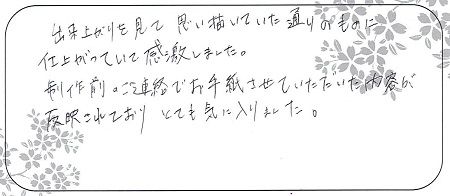 出来上がりを見て 思い描いていた通りのものに
仕上がっていて感激しました。
制作前のご連絡でお手紙させていただいた内容が
反映されており とても気に入りました。